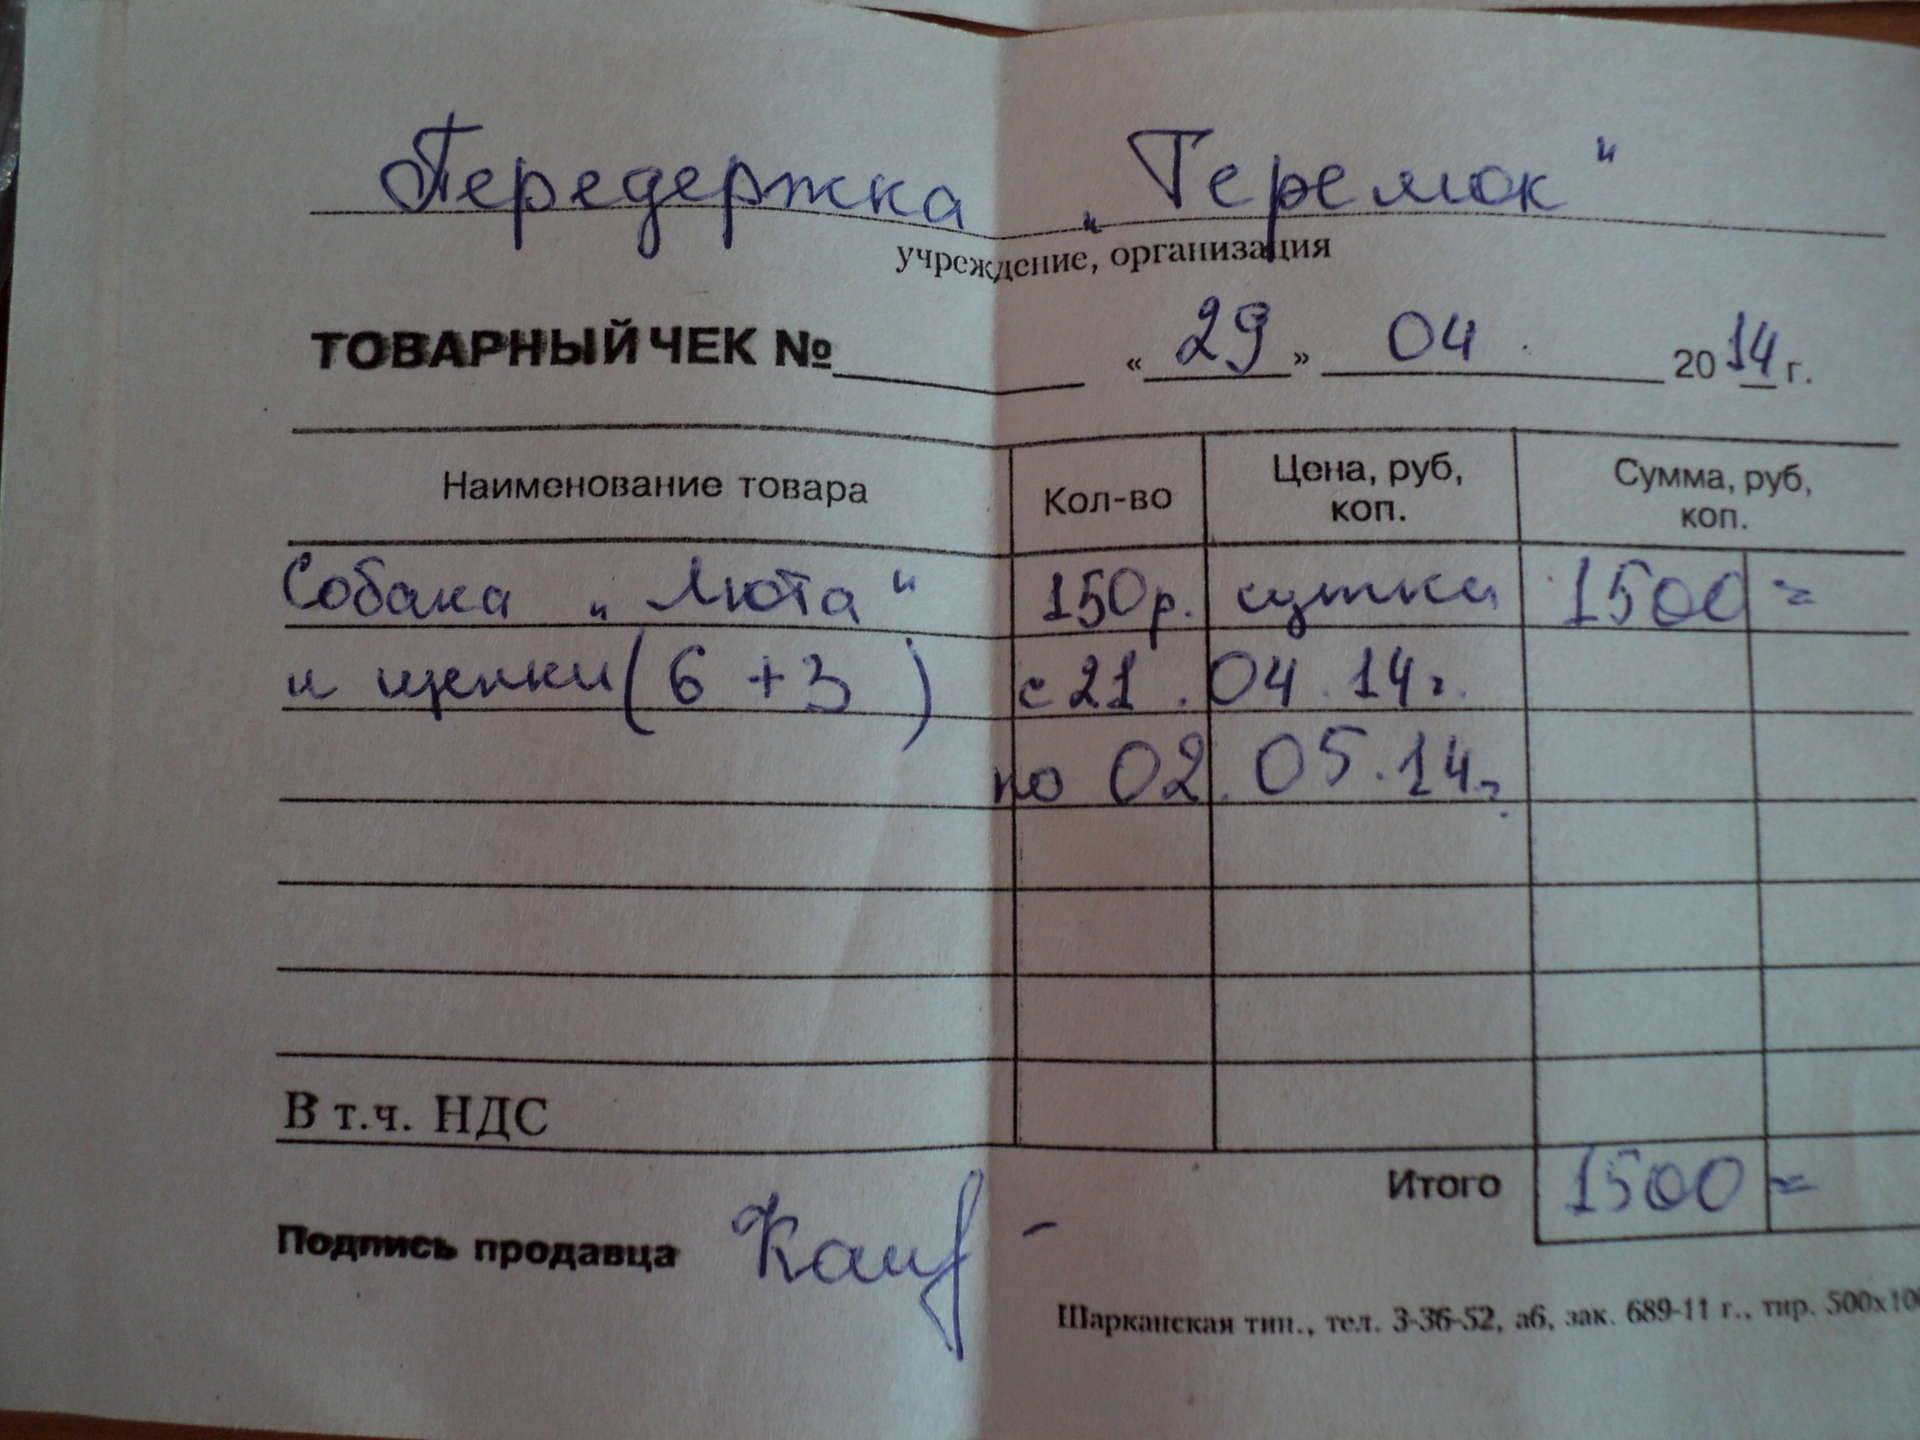 Передержка „Теремок"
учреждение, организация
ТОВАРНЫЙ ЧЕК № « 29 » 04. 2014 г.
Наименование товара Кол-во Цена, руб, коп. Сумма, руб, коп.
Собака „Люта" 150р. сутки 1500 =
и щенки (6 + 3) с 21.04.14г.
по 02.05.14г.
В т.ч. НДС
Итого 1500 =
Подпись продавца
Шарканская тип., тел. 3-36-52, а6, зак. 689-11 г., тир. 500х100